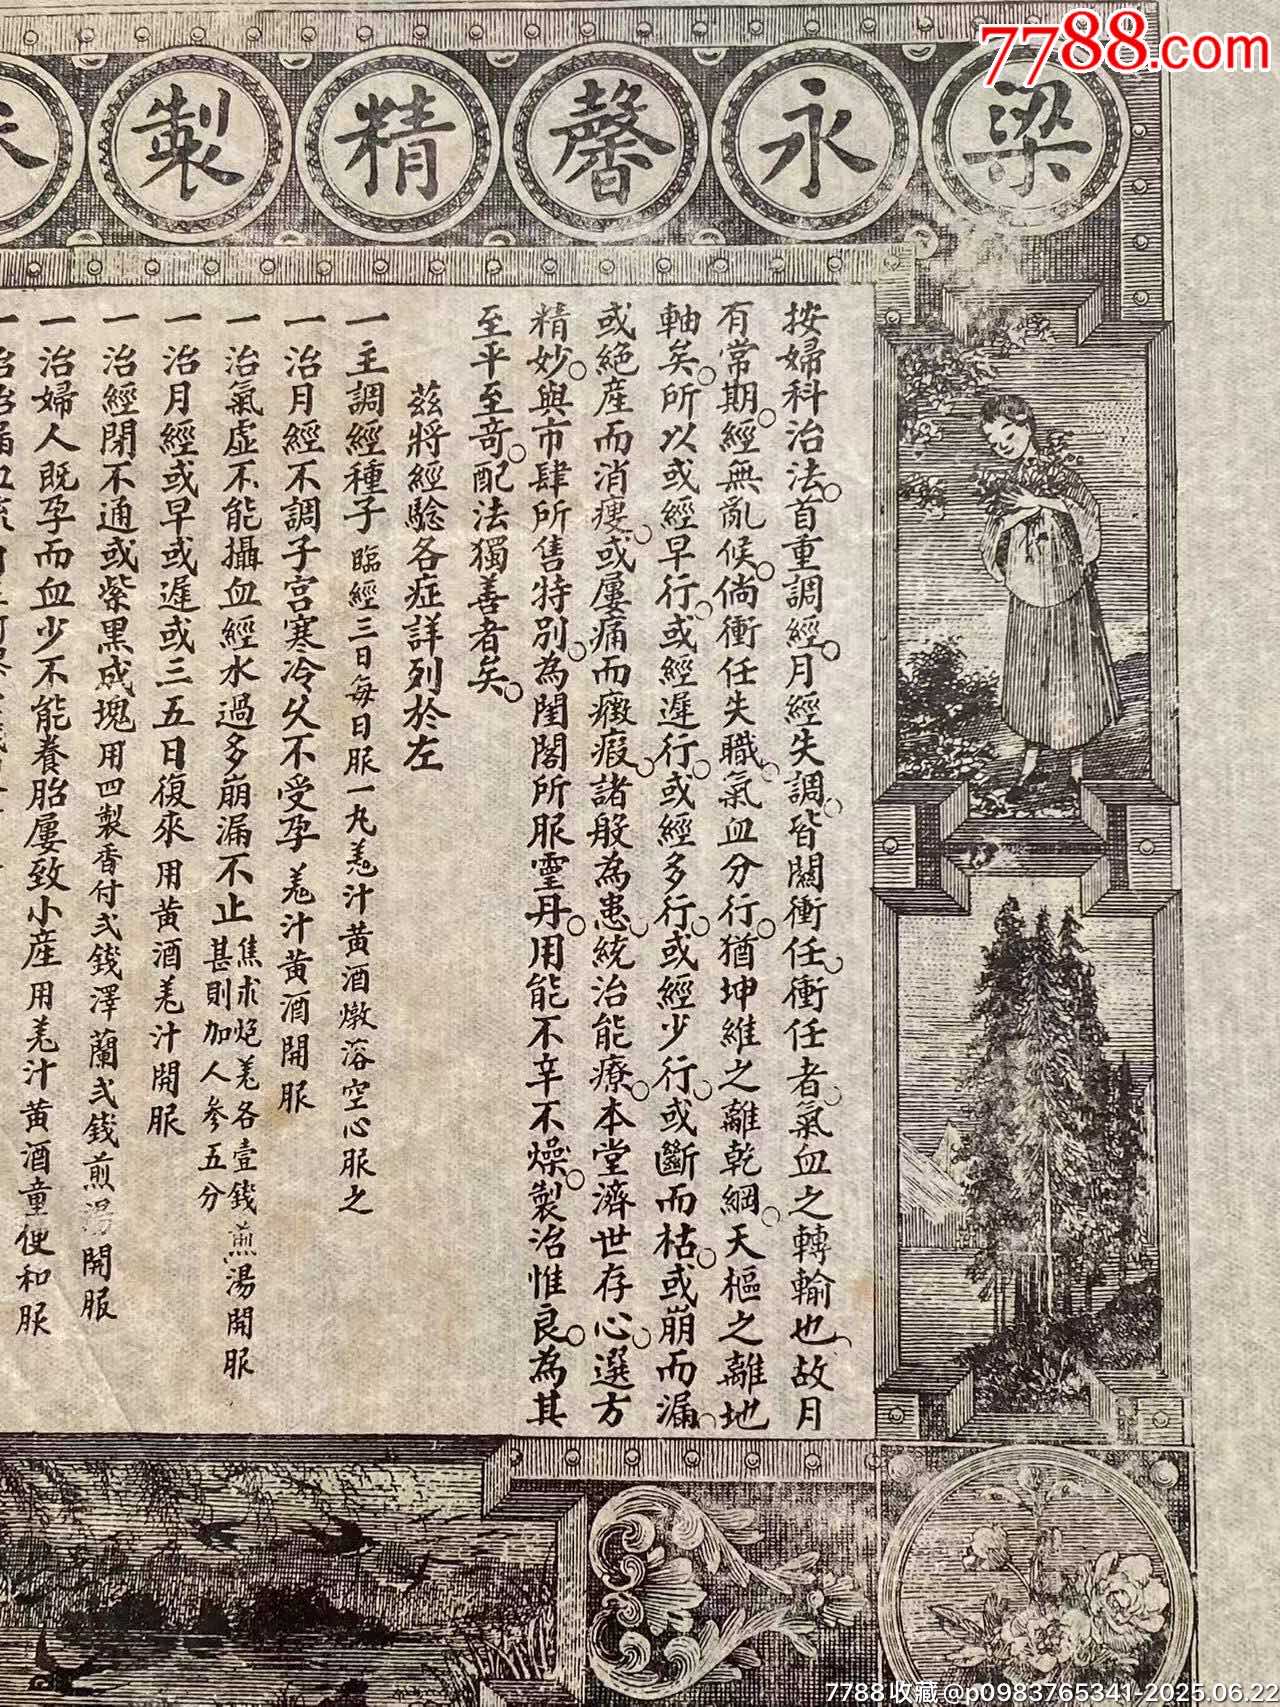 7788.com
梁永馨精製
按婦科治法。首重調經。月經失調。皆關衝任。衝任者氣血之轉輸也。故月
有常期。經無亂候。倘衝任失職。氣血分行。猶坤維之離乾綱。天樞之離地
軸矣。所以或經早行。或經遲行。或經多行。或經少行。或斷而枯。或崩而漏。
或絕產而消瘦。或屢痛而癥瘕。諸般為患。統治能療。本堂濟世存心。選方
精妙。與市肆所售特別。為閨閣所服靈丹。用能不辛不燥。製治惟良。為其
至平至奇。配法獨善者矣。
茲將經驗各症詳列於左
一主調經種子 臨經三日每日服一丸羗汁黃酒燉溶空心服之
一治月經不調子宮寒冷久不受孕 羗汁黃酒開服
一治氣虛不能攝血經水過多崩漏不止 焦求炮羗各壹錢煎湯開服 甚則加人參五分
一治月經或早或遲或三五日復來 用黃酒羗汁開服
一治經閉不通或紫黑成塊 用四製香付弍錢澤蘭弍錢煎湯開服
一治婦人既孕而血少不能養胎屢致小產 用羗汁黃酒童便和服
一治
7788收藏@p0983765341-2025.06.22